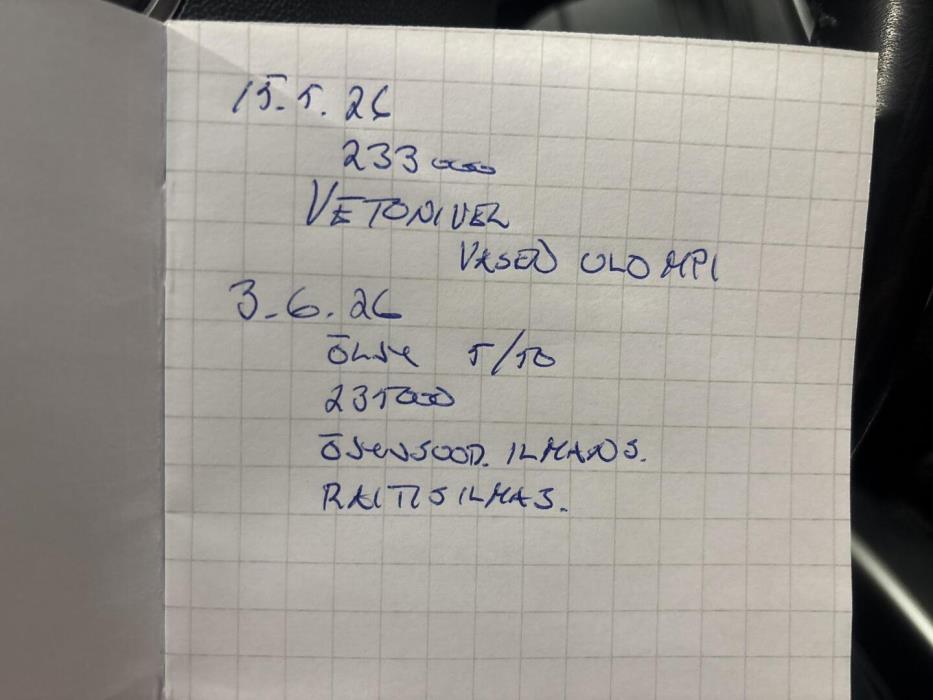 15.5.26
233000
VETONIVEL
VASEN ULOMPI
3.6.26
ÖLJY 5/10
235000
ÖSUOD. ILMANS.
RAITISILMAS.